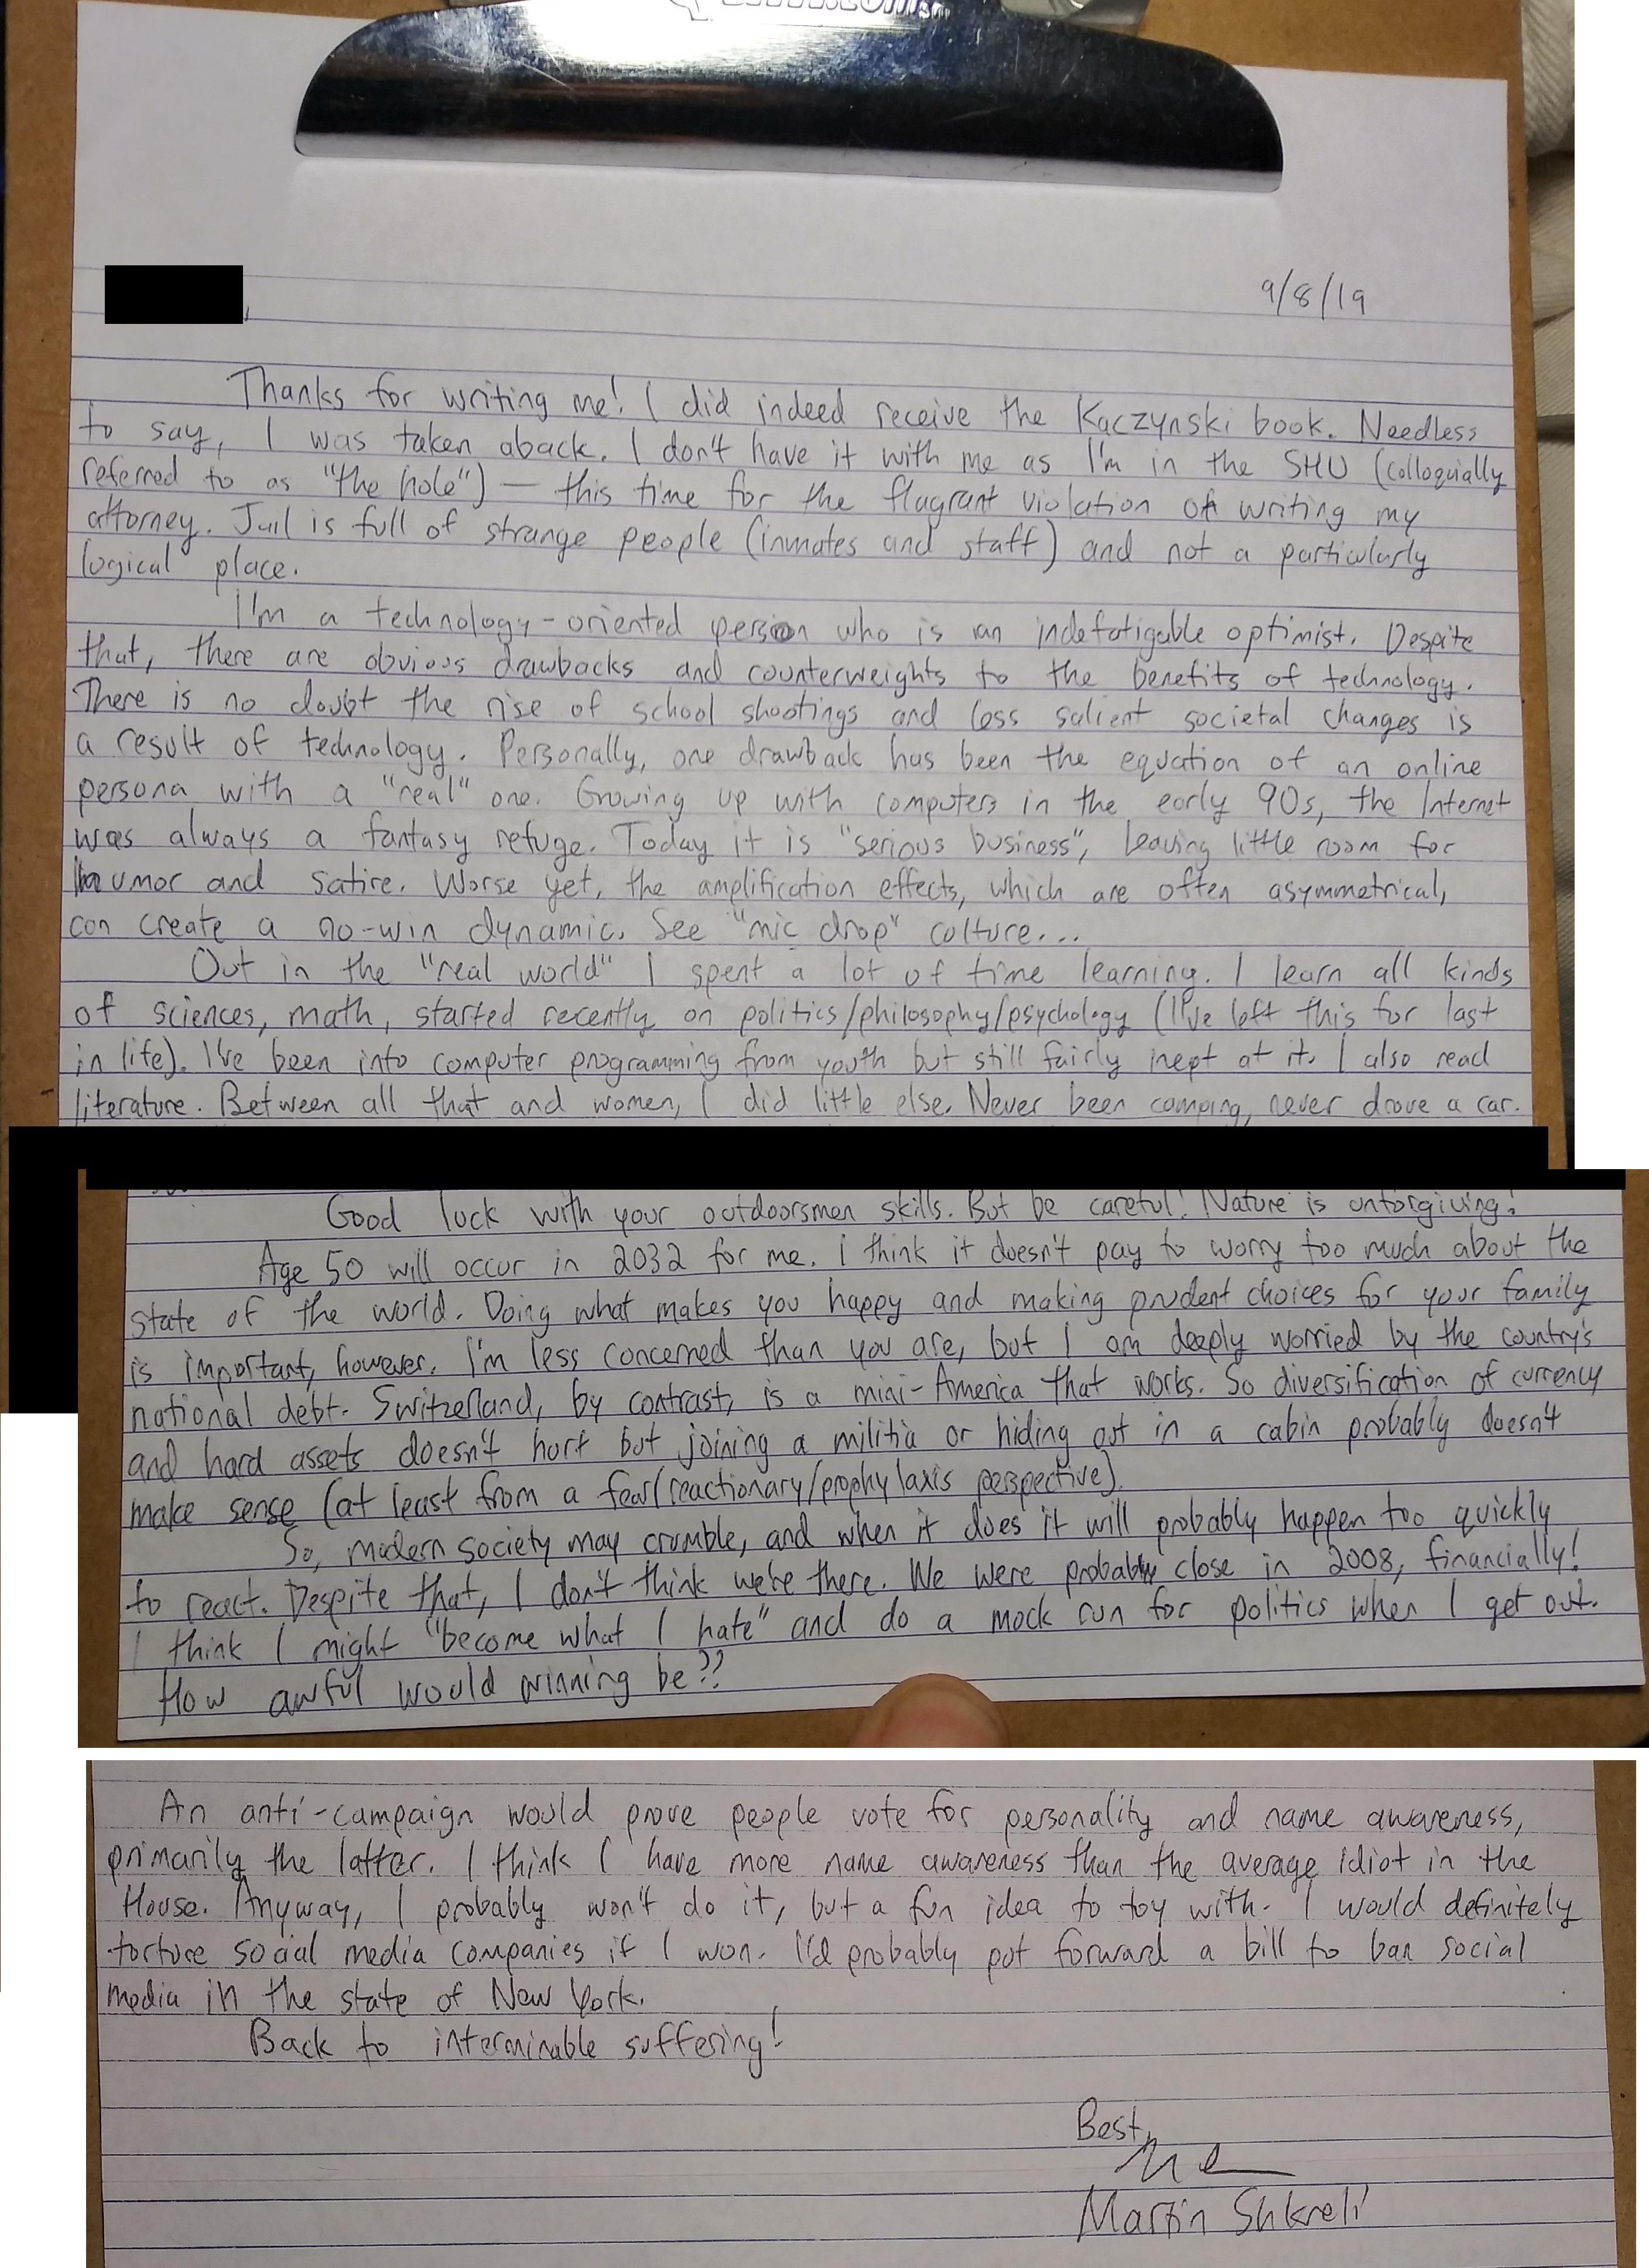 9/8/19
Thanks for writing me! I did indeed receive the Kaczynski book. Needless
to say, I was taken aback. I don't have it with me as I'm in the SHU (colloquially
referred to as "the hole") — this time for the flagrant violation of writing my
attorney. Jail is full of strange people (inmates and staff) and not a particularly
logical place.
I'm a technology-oriented person who is an indefatigable optimist. Despite
that, there are obvious drawbacks and counterweights to the benefits of technology.
There is no doubt the rise of school shootings and less salient societal changes is
a result of technology. Personally, one drawback has been the equation of an online
persona with a "real" one. Growing up with computers in the early 90s, the Internet
was always a fantasy refuge. Today it is "serious business", leaving little room for
humor and satire. Worse yet, the amplification effects, which are often asymmetrical,
can create a no-win dynamic. See "mic drop" culture...
Out in the "real world" I spent a lot of time learning. I learn all kinds
of sciences, math, started recently on politics/philosophy/psychology (I've left this for last
in life). I've been into computer programming from youth but still fairly inept at it. I also read
literature. Between all that and women, I did little else. Never been camping, never drove a car.
Good luck with your outdoorsmen skills. But be careful! Nature is unforgiving!
Age 50 will occur in 2032 for me. I think it doesn't pay to worry too much about the
state of the world. Doing what makes you happy and making prudent choices for your family
is important, however. I'm less concerned than you are, but I am deeply worried by the country's
national debt. Switzerland, by contrast, is a mini-America that works. So diversification of currency
and hard assets doesn't hurt but joining a militia or hiding out in a cabin probably doesn't
make sense (at least from a fear/reactionary/prophylaxis perspective).
So, modern society may crumble, and when it does it will probably happen too quickly
to react. Despite that, I don't think we're there. We were probably close in 2008, financially!
I think I might "become what I hate" and do a mock run for politics when I get out.
How awful would winning be??
An anti-campaign would prove people vote for personality and name awareness,
primarily the latter. I think I have more name awareness than the average idiot in the
House. Anyway, I probably won't do it, but a fun idea to toy with. I would definitely
torture social media companies if I won. I'd probably put forward a bill to ban social
media in the state of New York.
Back to interminable suffering!
Best,
Martin Shkreli